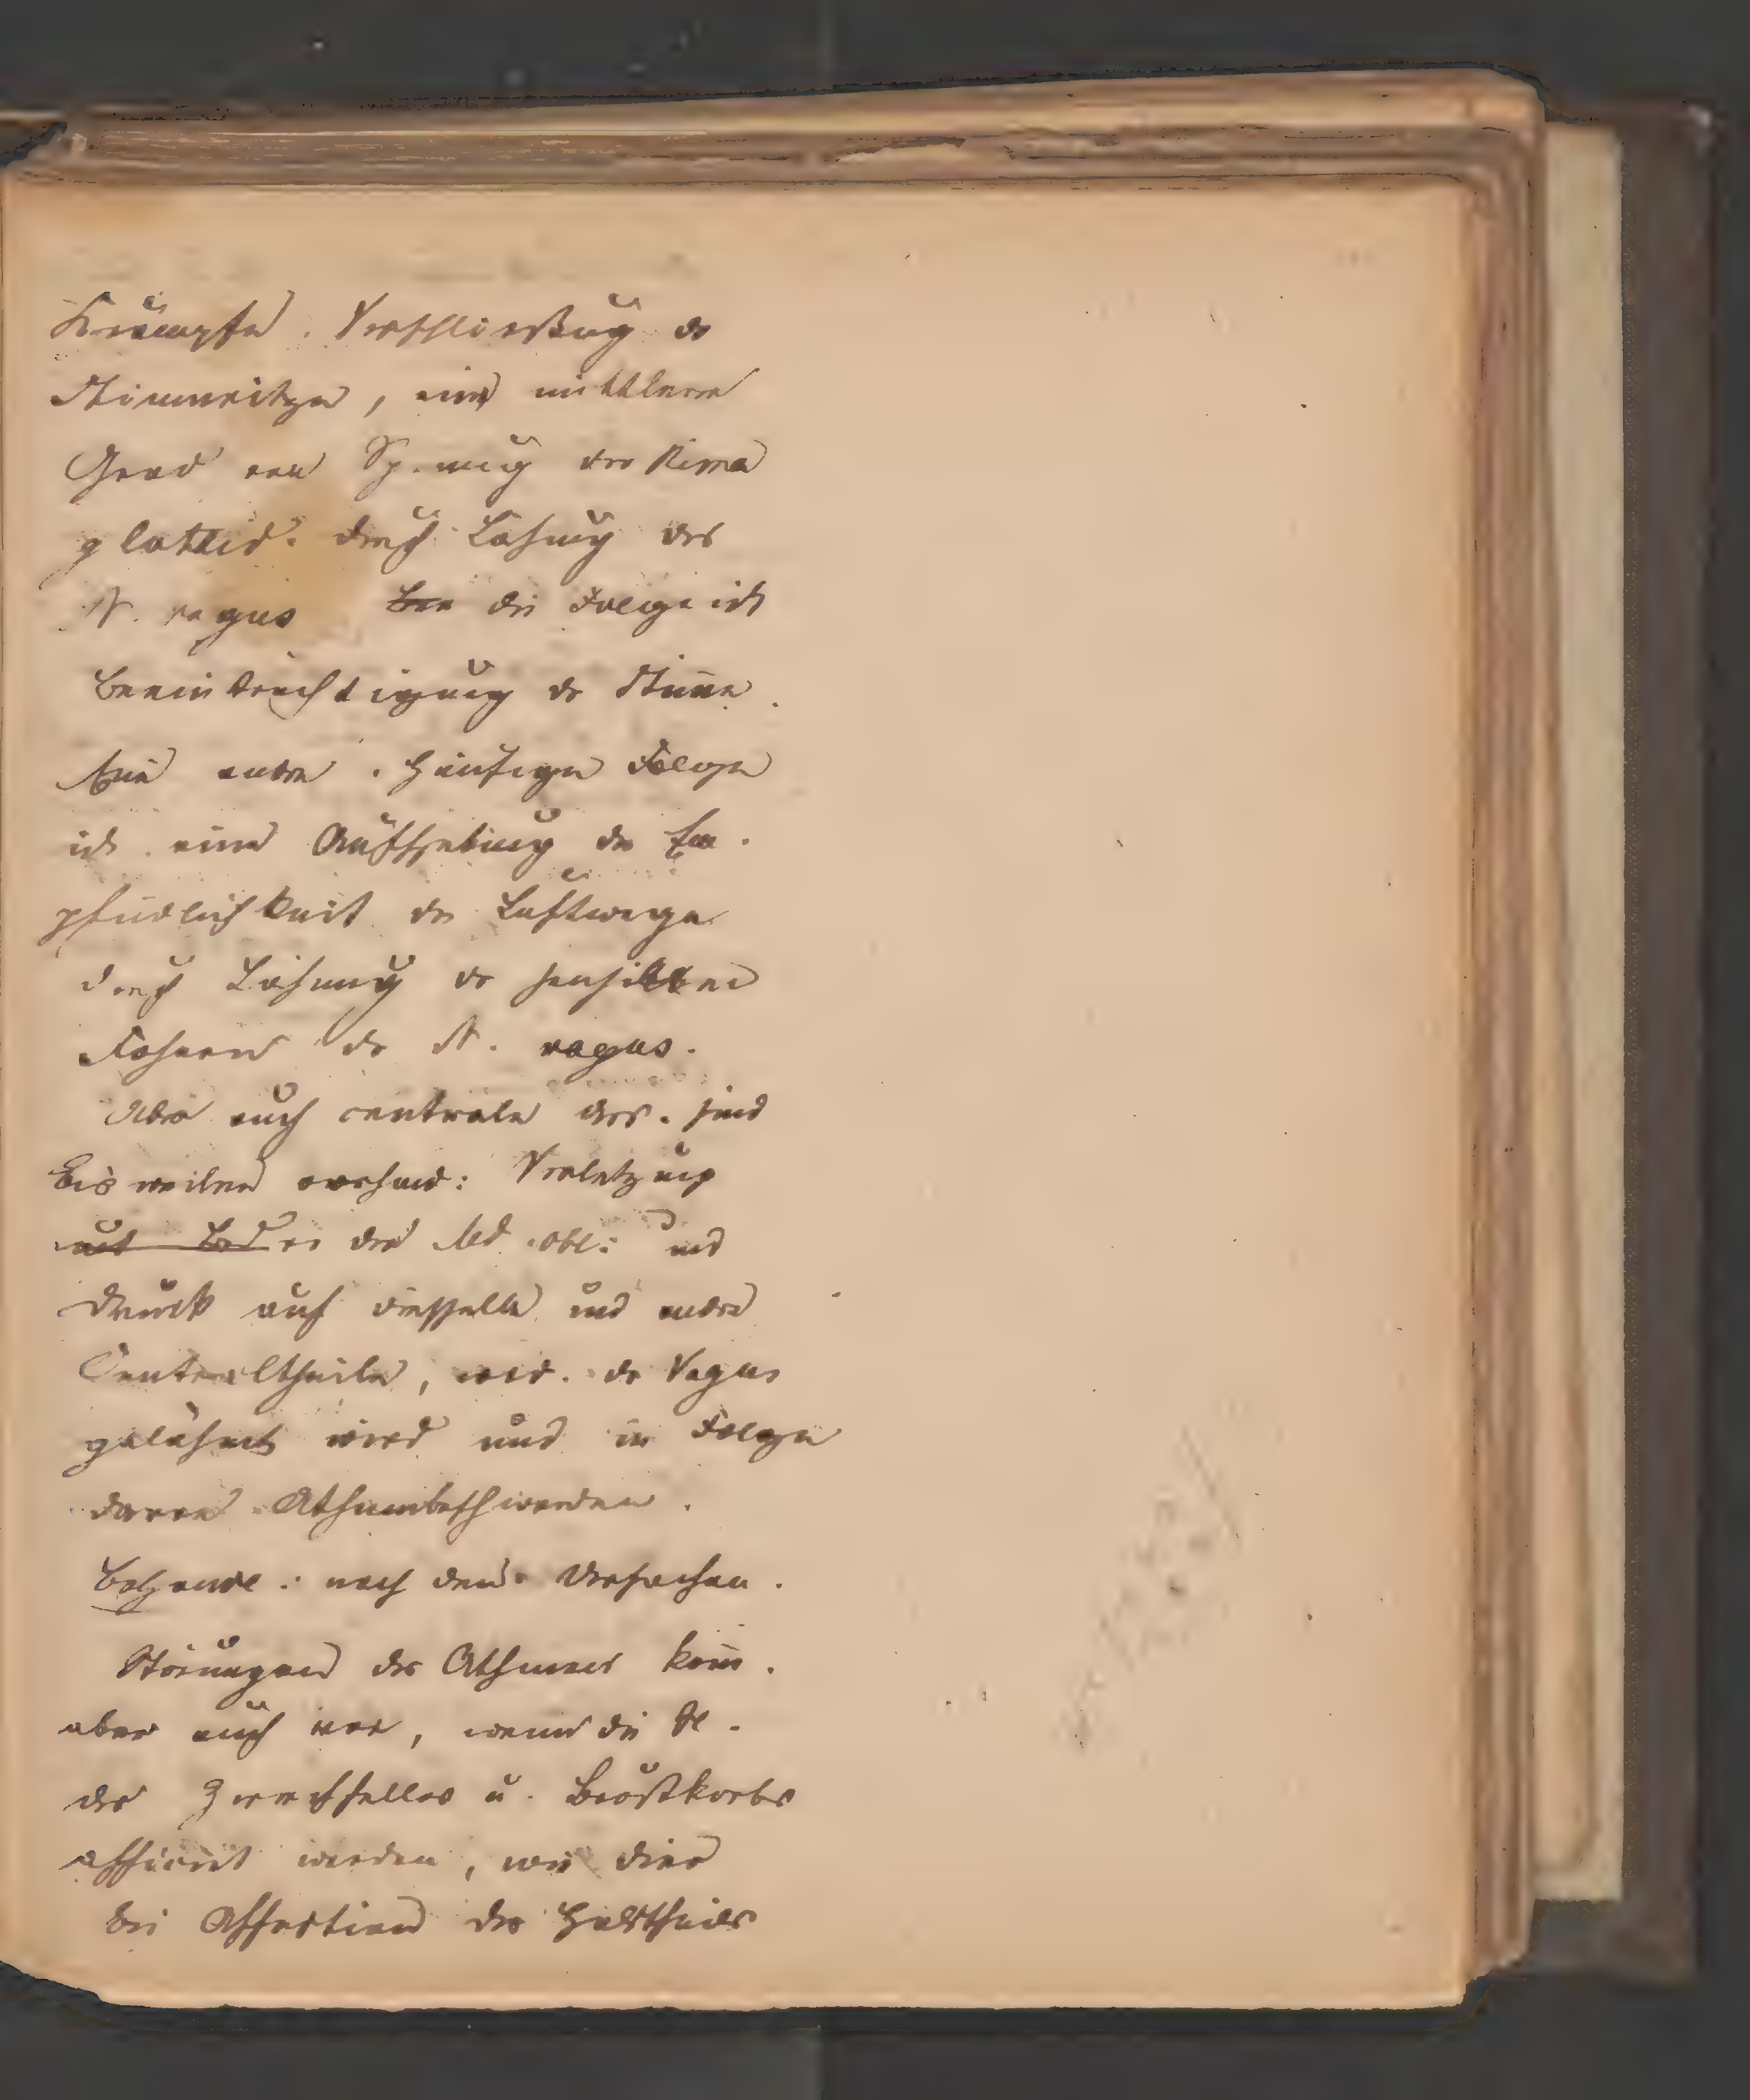 Krämpfe. Verschließung der
Stimmritze, ein mittlerer
Grad von Spannung der Rima
glottid. durch Lähmung des
N. vagus die Folge ist
Beeinträchtigung der Stimme.
Eine andere häufige Folge
ist eine Aufhebung der Em-
pfindlichkeit der Luftwege
durch Lähmung der sensiblen
Fasern des N. vagus.
Aber auch centrale Urs. sind
bisweilen vorhand: Verletzung
der Med. obl: und
Druck auf dieselbe und andre
Centraltheile, wod. der Vagus
gelähmt wird und in Folge
davon Athembeschwerden.
Behandl: nach den Ursachen.
Störungen des Athmens kom̄.
aber auch vor, wenn die
des Zwerchfelles u. Brustkorbes
afficirt werden, wie dies
bei Affection des Halstheiles